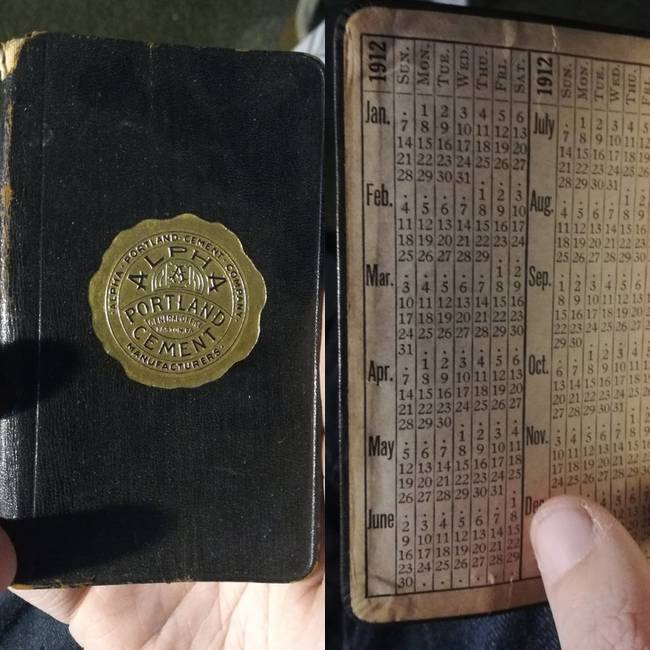 ALPHA · PORTLAND · CEMENT · COMPANY
ALPHA
A
PORTLAND
GENERAL OFFICE
EASTON, PA.
CEMENT
MANUFACTURERS
1912 SUN. MON. TUE. WED. THU. FRI. SAT.
Jan. . 1 2 3 4 5 6
7 8 9 10 11 12 13
14 15 16 17 18 19 20
21 22 23 24 25 26 27
28 29 30 31
Feb. 1 2 3
4 5 6 7 8 9 10
11 12 13 14 15 16 17
18 19 20 21 22 23 24
25 26 27 28 29
Mar. 1 2
3 4 5 6 7 8 9
10 11 12 13 14 15 16
17 18 19 20 21 22 23
24 25 26 27 28 29 30
31
Apr. . 1 2 3 4 5 6
7 8 9 10 11 12 13
14 15 16 17 18 19 20
21 22 23 24 25 26 27
28 29 30
May 1 2 3 4
5 6 7 8 9 10 11
12 13 14 15 16 17 18
19 20 21 22 23 24 25
26 27 28 29 30 31
June 1
2 3 4 5 6 7 8
9 10 11 12 13 14 15
16 17 18 19 20 21 22
23 24 25 26 27 28 29
30
1912 SUN. MON. TUE. WED. THU.
July . 1 2 3 4
7 8 9 10 11
14 15 16 17 18
21 22 23 24 25
28 29 30 31
Aug. 1
4 5 6 7 8
11 12 13 14 15
18 19 20 21 22
25 26 27 28 29
Sep. 1 2 3 4 5
8 9 10 11 12
15 16 17 18 19
22 23 24 25 26
29 30
Oct. 1 2 3
6 7 8 9 10
13 14 15 16 17
20 21 22 23 24
27 28 29 30 31
Nov.
3 4 5 6 7
10 11 12 13 14
17 18 19 20 21
24